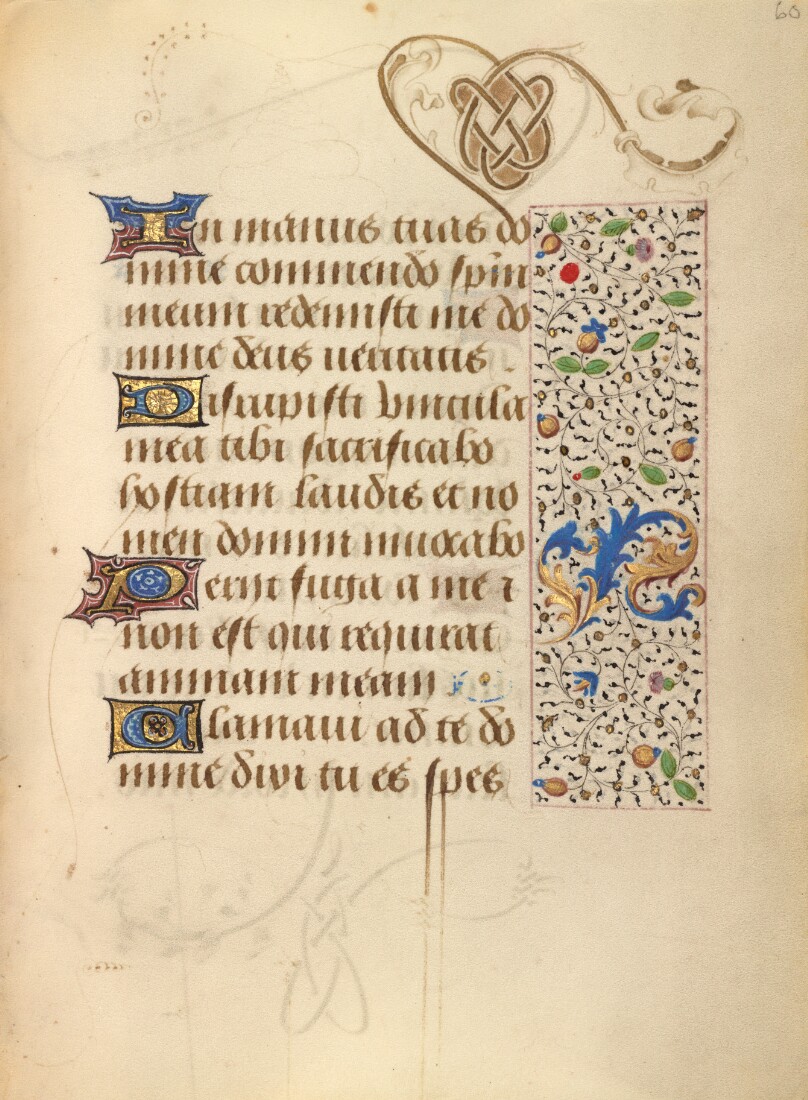 60
In manus tuas do
mine commendo spm̄
meum redemisti me do
mine deus ueritatis .
Disrupisti vincula
mea tibi sacrificabo
hostiam laudis et no
men domini inuocabo
Periit fuga a me ⁊
non est qui requirat
animam meam
Clamaui ad te do
mine dixi tu es spes